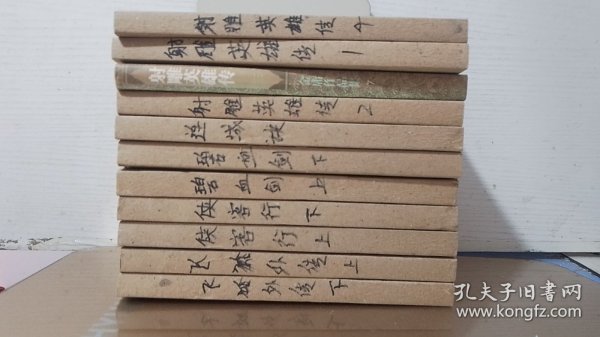 射雕英雄传 4
射雕英雄传 1
射雕英雄传 金庸作品集 7
射雕英雄传 2
连城诀
碧血剑 下
碧血剑 上
侠客行 下
侠客行 上
飞狐外传 上
飞狐外传 下
孔夫子旧书网
www.kongfz.com